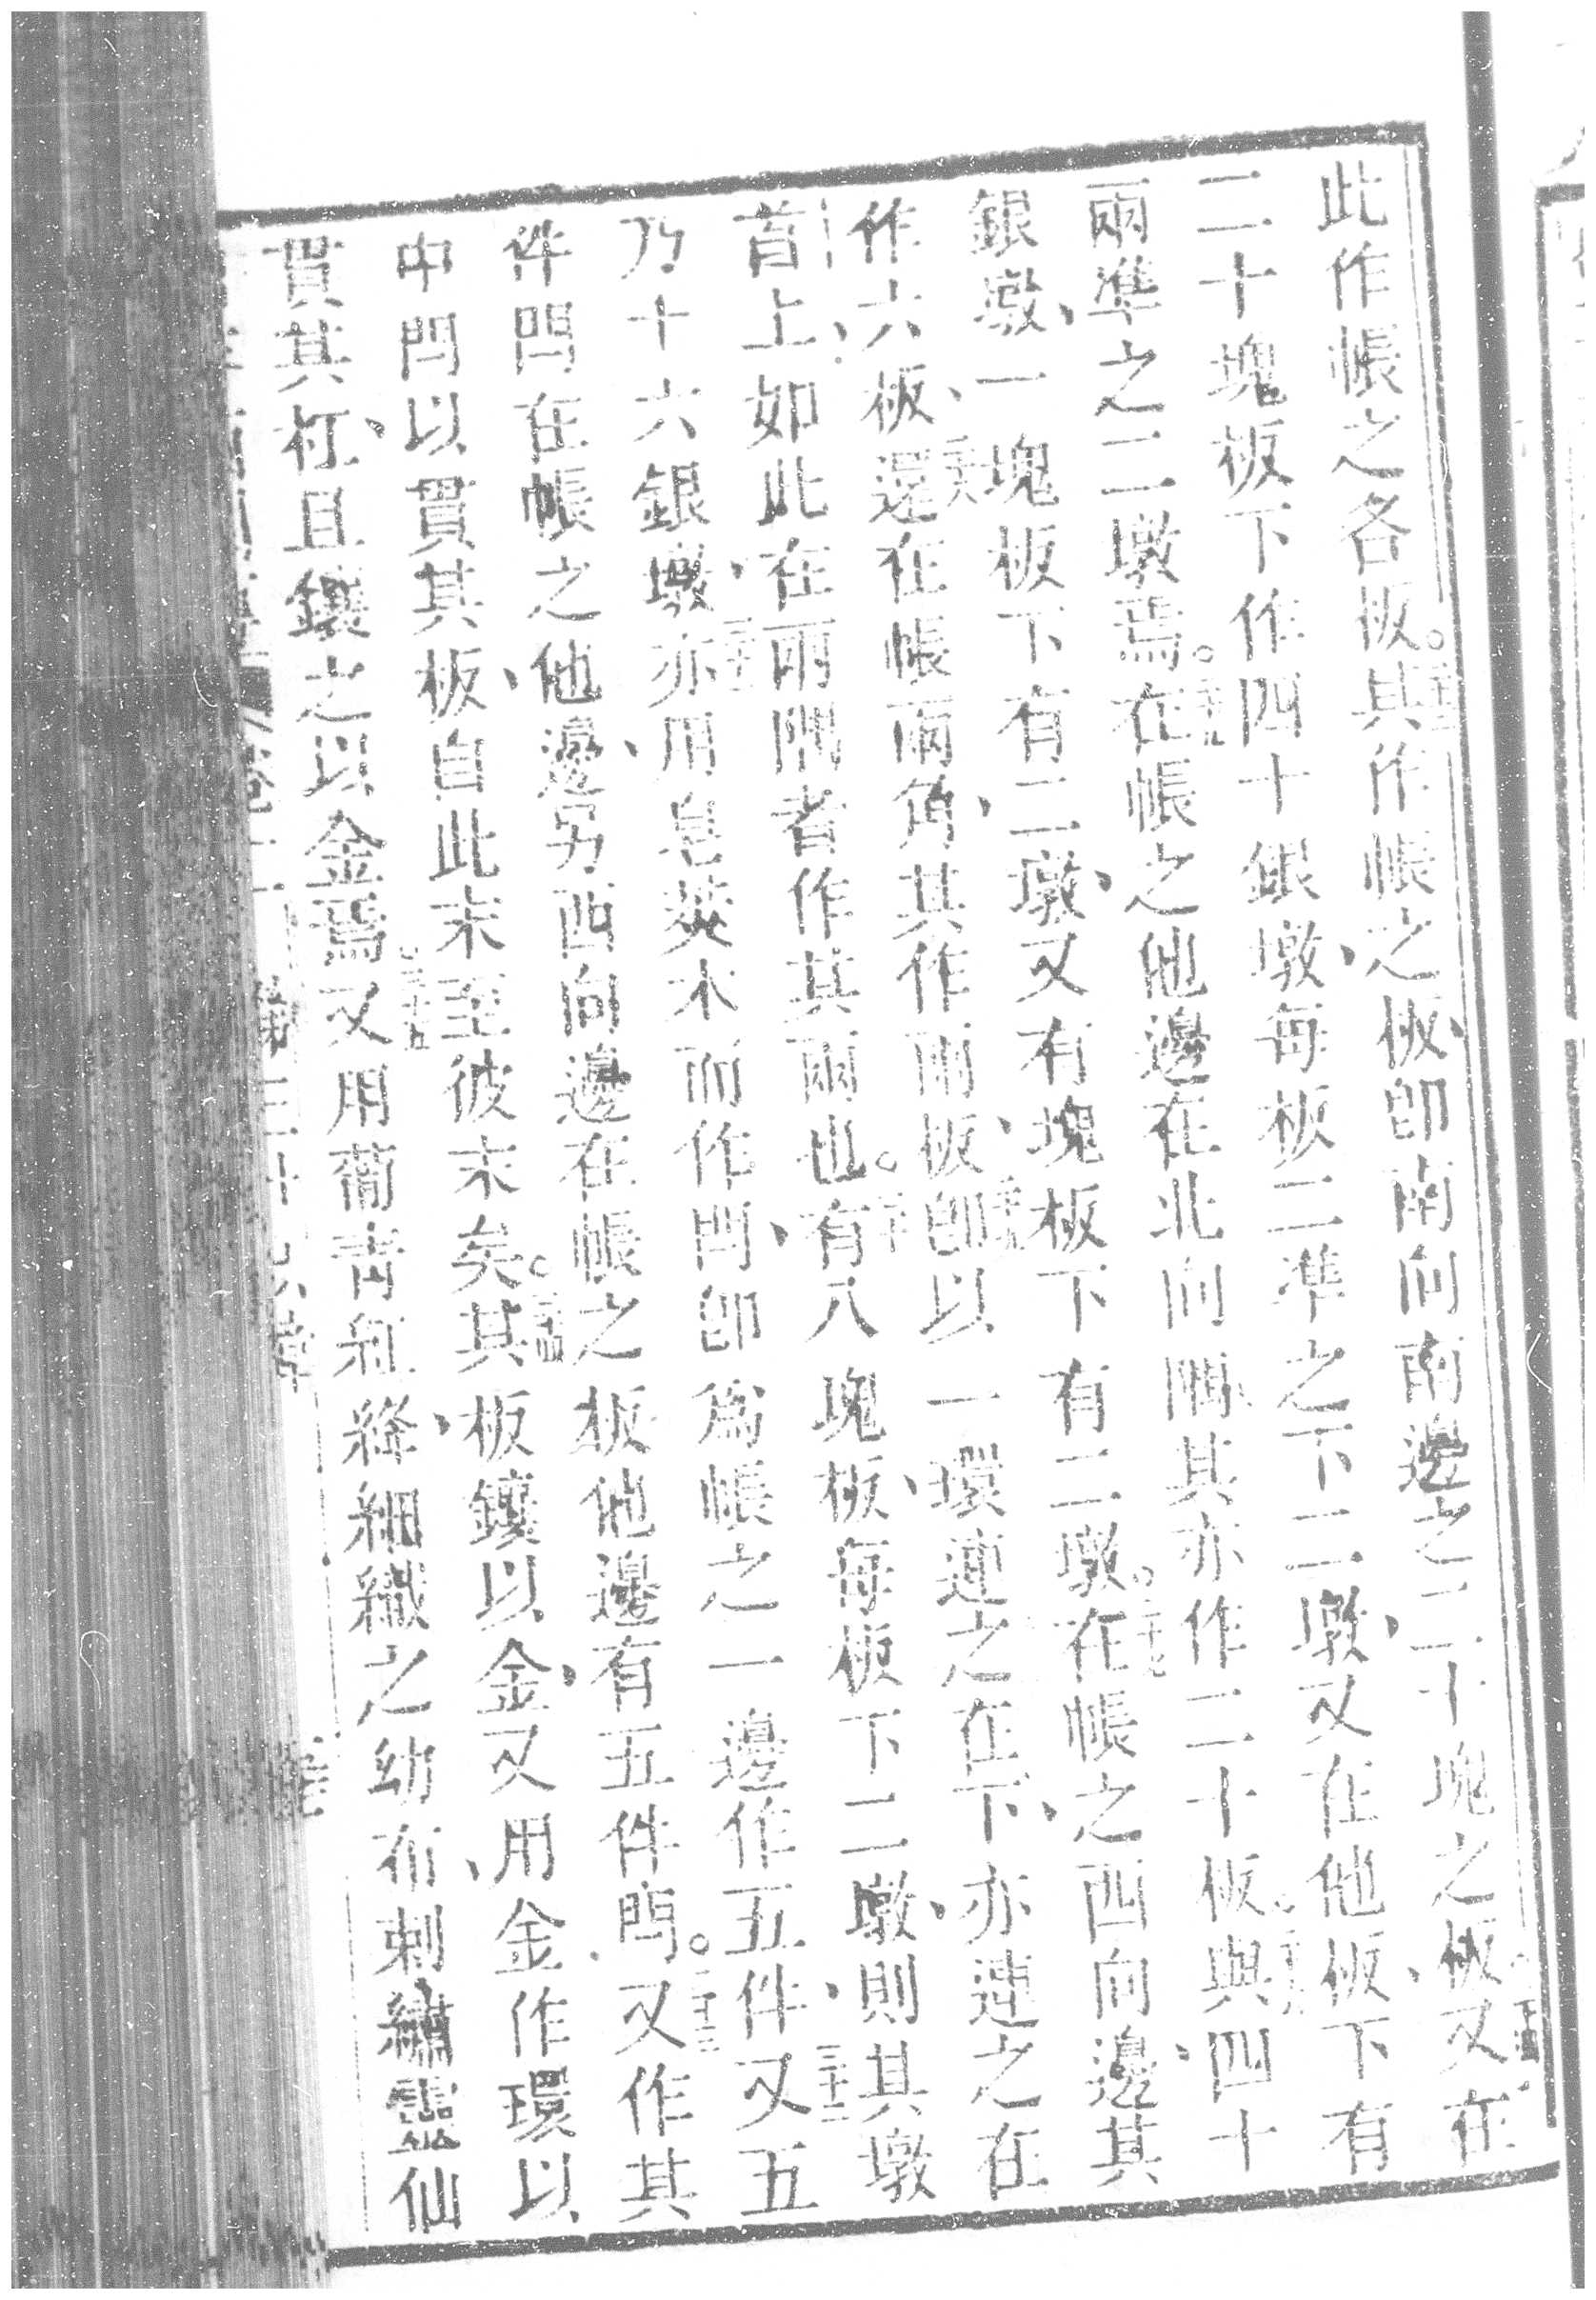 此作帳之各板。其作帳之板、即南向南邊之二十塊之板、又在
二十塊板下作四十銀墩、每板二準之下二墩、又在他板下、有
兩準之二墩焉。在帳之他邊在北向隅、其亦作二十板。與四十
銀墩、一塊板下有二墩、又有塊板下有二墩。在帳之西向邊、其
作六板、還在帳兩角、其作兩板、即以一環連之在下、亦連之在
首上、如此在兩隅者、作其兩也。有八塊板、每板下二墩、則其墩
乃十六銀墩、亦用皂莢木而作閂、即為帳之一邊作五件、又五
件閂在帳之他邊、另西向邊在帳之板他邊有五件閂。又作其
中閂以貫其板、自此末至彼末矣。其板鑲以金、又用金作環以
貫其杠、且鑲之以金焉。又用葡青紅絳、細織之幼布、刺繡靈仙